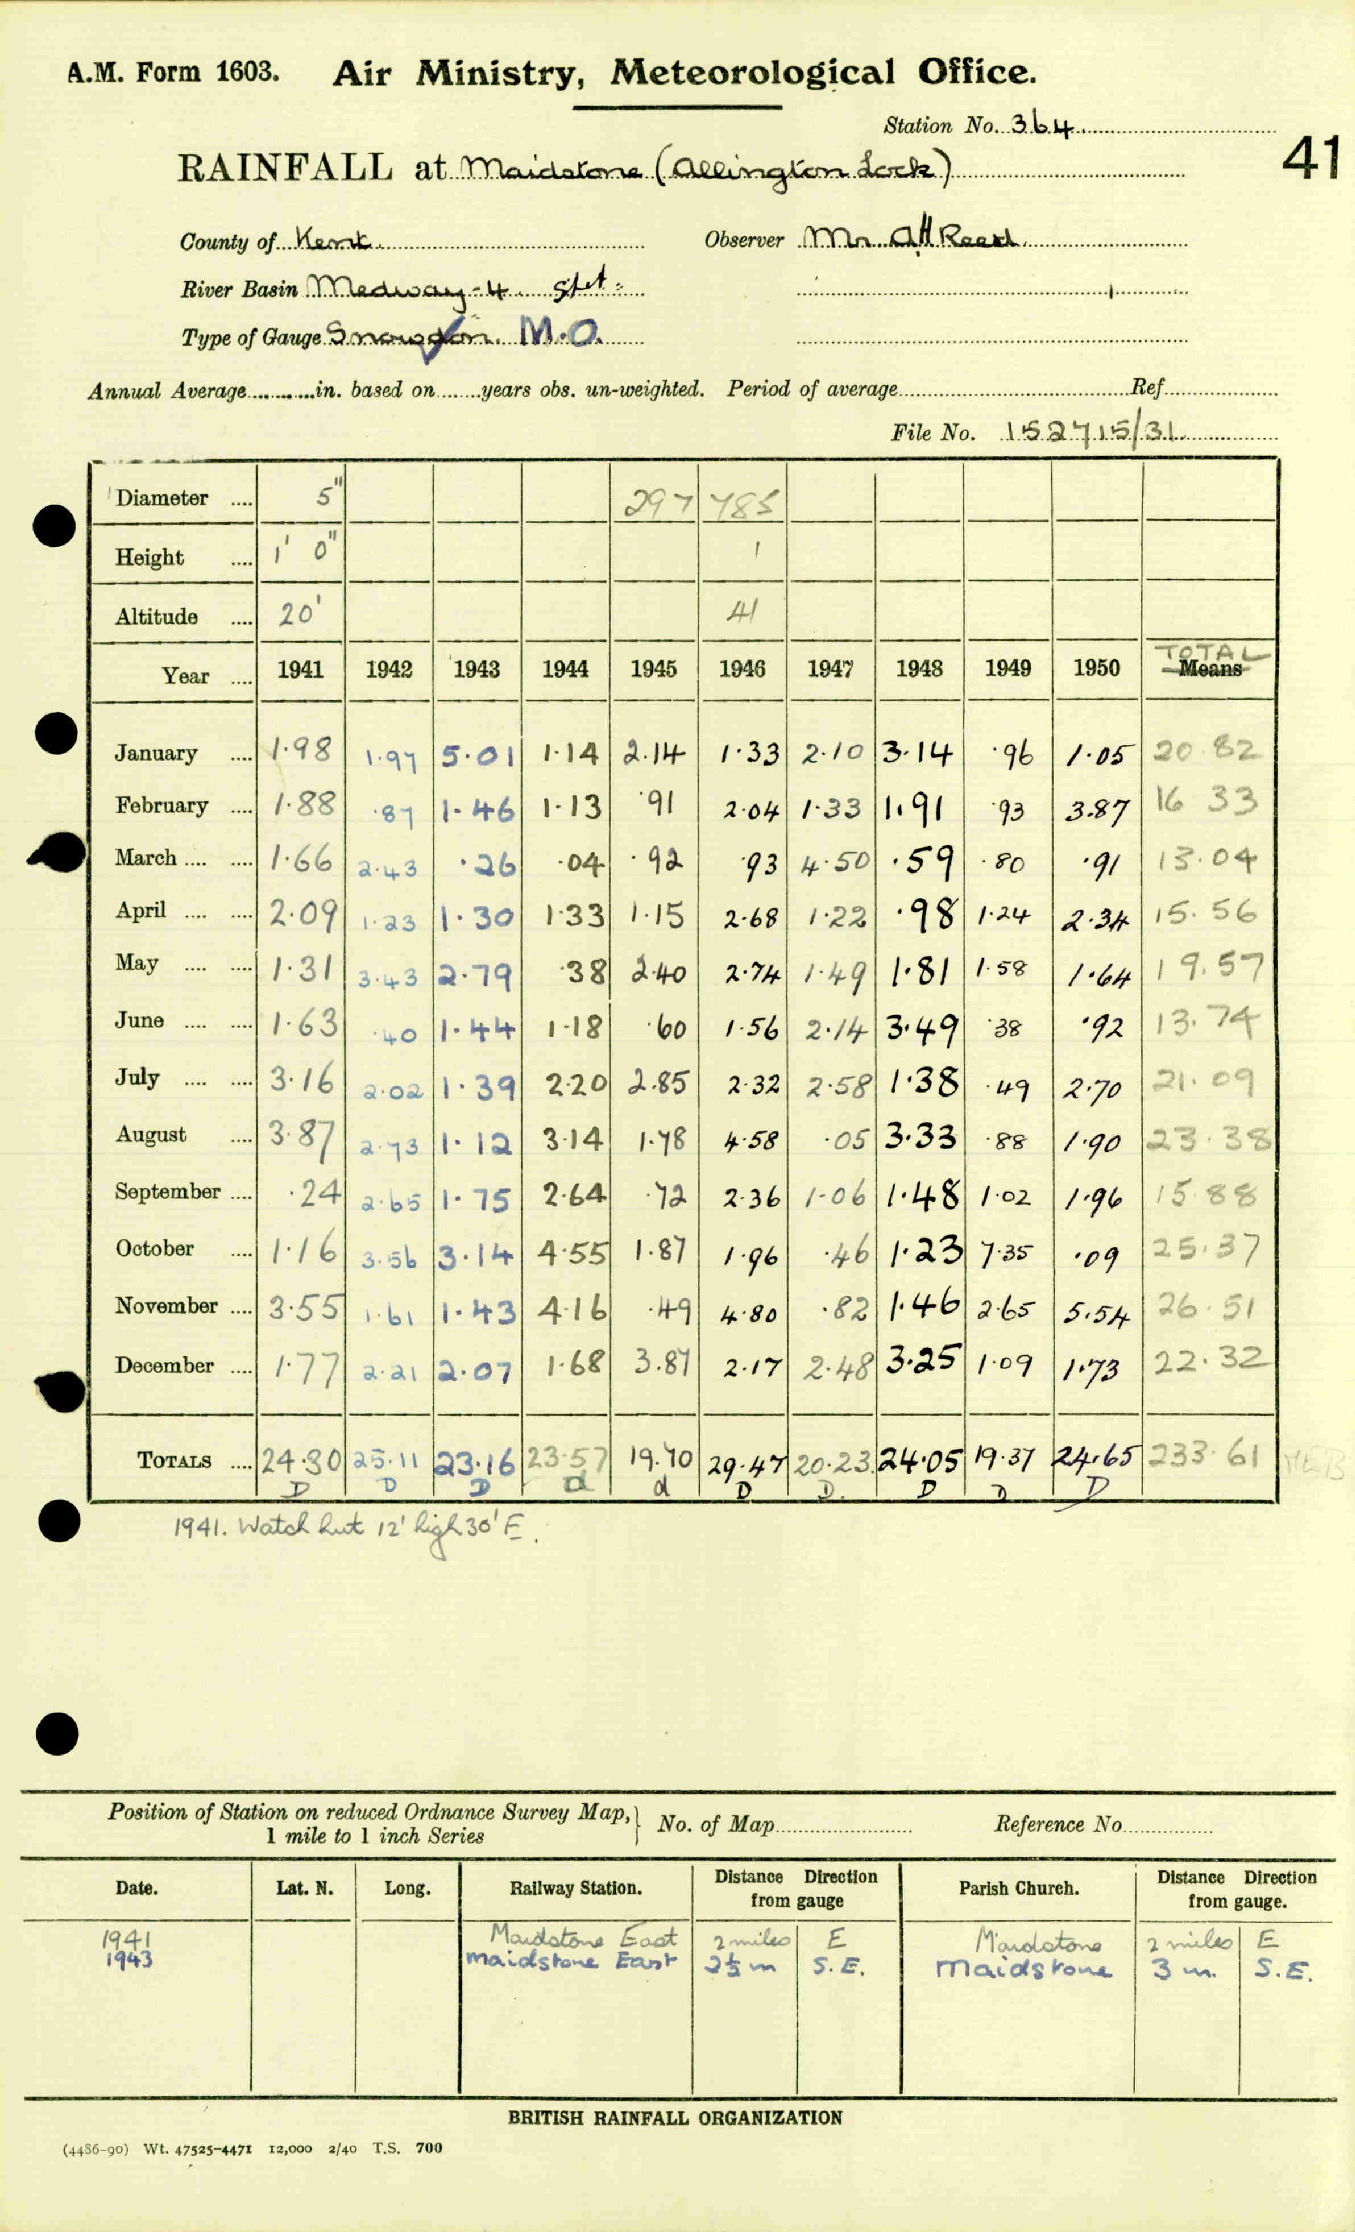 A.M. Form 1603. Air Ministry, Meteorological Office.
Station No. 364
41
RAINFALL at Maidstone (Allington Lock)
County of Kent Observer Mr. A H Reed
River Basin Medway-4 Stet:
Type of Gauge Snowdon. M.O.
Annual Average in. based on years obs. un-weighted. Period of average Ref
File No. 152715/31
Diameter 5" 297 785
Height 1' 0" 1
Altitude 20' 41
TOTAL
Year 1941 1942 1943 1944 1945 1946 1947 1948 1949 1950 Means
January 1.98 1.97 5.01 1.14 2.14 1.33 2.10 3.14 .96 1.05 20.82
February 1.88 .87 1.46 1.13 .91 2.04 1.33 1.91 .93 3.87 16 33
March 1.66 2.43 .26 .04 .92 .93 4.50 .59 .80 .91 13.04
April 2.09 1.23 1.30 1.33 1.15 2.68 1.22 .98 1.24 2.34 15.56
May 1.31 3.43 2.79 .38 2.40 2.74 1.49 1.81 1.58 1.64 19.57
June 1.63 .40 1.44 1.18 .60 1.56 2.14 3.49 .38 .92 13.74
July 3.16 2.02 1.39 2.20 2.85 2.32 2.58 1.38 .49 2.70 21.09
August 3.87 2.73 1.12 3.14 1.78 4.58 .05 3.33 .88 1.90 23.38
September .24 2.65 1.75 2.64 .72 2.36 1.06 1.48 1.02 1.96 15.88
October 1.16 3.56 3.14 4.55 1.87 1.96 .46 1.23 7.35 .09 25.37
November 3.55 1.61 1.43 4.16 .49 4.80 .82 1.46 2.65 5.54 26.51
December 1.77 2.21 2.07 1.68 3.87 2.17 2.48 3.25 1.09 1.73 22.32
TOTALS 24.30 25.11 23.16 23.57 19.70 29.47 20.23 24.05 19.37 24.65 233.61
D D D d d D D. D D D
1941. Watch hut 12' high 30' E.
Position of Station on reduced Ordnance Survey Map, 1 mile to 1 inch Series } No. of Map Reference No
Date. Lat. N. Long. Railway Station. Distance Direction from gauge Parish Church. Distance Direction from gauge.
1941 Maidstone East 2 miles E Maidstone 2 miles E
1943 Maidstone East 2½ m S.E. Maidstone 3 m. S.E.
BRITISH RAINFALL ORGANIZATION
(4486-90) Wt. 47525-4471 12,000 2/40 T.S. 700